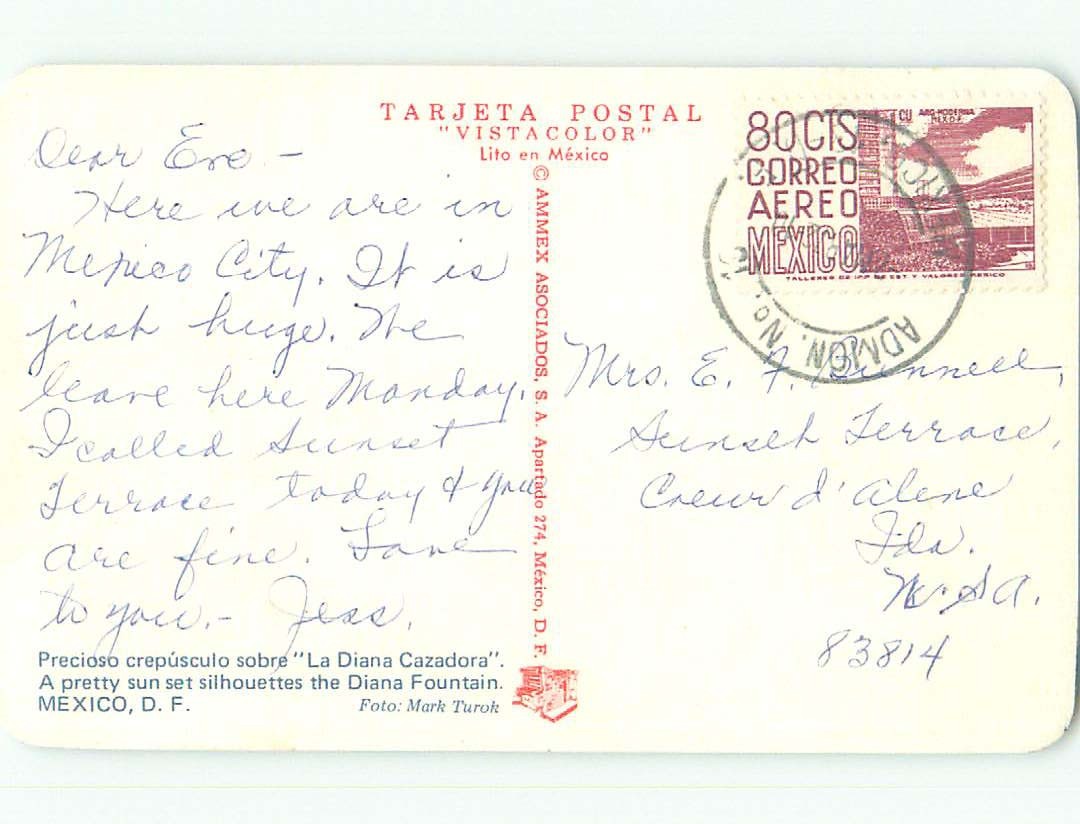 TARJETA POSTAL
"VISTACOLOR"
Lito en México
Dear Eve -
Here we are in
Mexico City. It is
just huge. We
leave here Monday.
I called Sunset
Terrace today & you
are fine. Love
to you. - Jess.
Precioso crepúsculo sobre "La Diana Cazadora".
A pretty sun set silhouettes the Diana Fountain.
MEXICO, D. F. Foto: Mark Turok
© AMMEX ASOCIADOS, S. A. Apartado 274, México, D. F.
80 CTS
CORREO
AEREO
MEXICO
CU ARQ-MODERNA
MEX D F
TALLERES DE IMP DE EST Y VALORES-MEXICO
ADMON. No.
Mrs. E. F. Bunnell,
Sunset Terrace,
Coeur d'Alene
Ida.
U.S.A.
83814